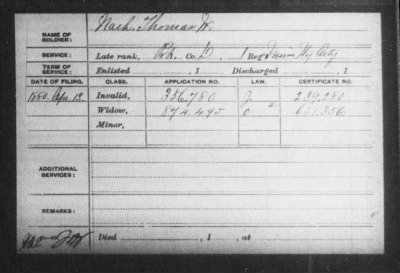 NAME OF SOLDIER: Nash, Thomas W.
SERVICE: Late rank, Co. L, 1 Reg
TERM OF SERVICE: Enlisted , 1 Discharged , 1
DATE OF FILING. CLASS. APPLICATION NO. LAW. CERTIFICATE NO.
1880 Apr. 13 Invalid, 356.780 239.280
Widow, 874.495
Minor,
ADDITIONAL SERVICES:
REMARKS:
Died , 1 , at